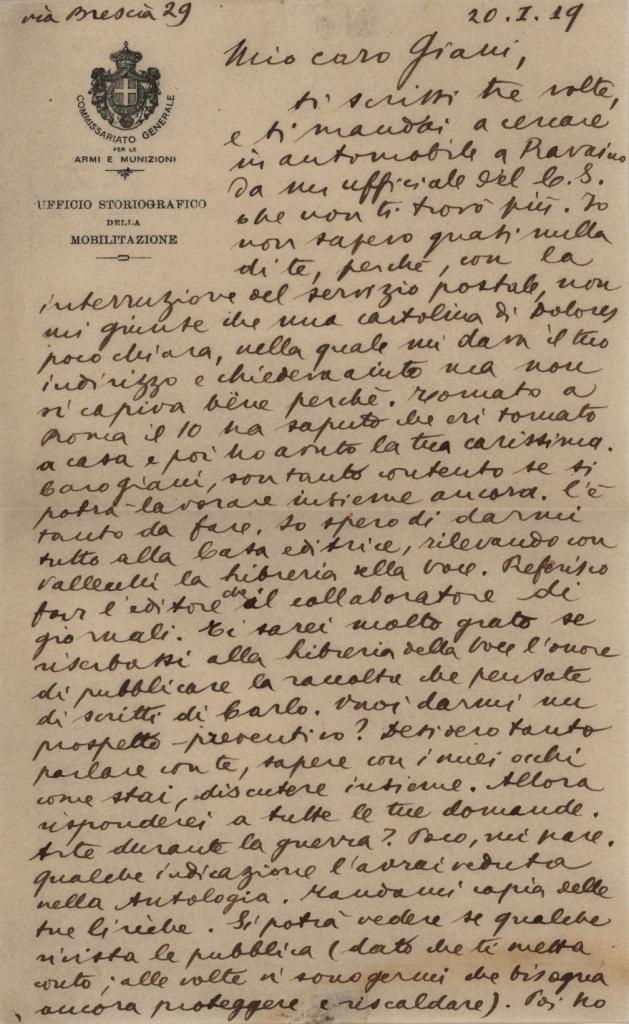 via Brescia 29
20. I. 19
COMMISSARIATO GENERALE
PER LE
ARMI E MUNIZIONI
UFFICIO STORIOGRAFICO
DELLA
MOBILITAZIONE
Mio caro Giani,
ti scrissi tre volte,
e ti mandai a cercare
in automobile a
da un ufficiale del C.S.
che non ti trovò più. Io
non sapevo quasi nulla
di te, perché, con la
interruzione del servizio postale, non
mi giunse che una cartolina di Dolores
poco chiara, nella quale mi dava il tuo
indirizzo e chiedeva aiuto ma non
si capiva bene perchè. Tornato a
Roma il 10 ha saputo che eri tornato
a casa e poi ho avuto la tua carissima.
Caro giani, son tanto contento se si
potrà lavorare insieme ancora. C'è
tanto da fare. Io spero di darmi
tutto alla Casa editrice, rilevando con
Vallecchi la Libreria della Voce. Preferisco
far l'editore che il collaboratore di
giornali. Ti sarei molto grato se
riserbassi alla Libreria della Voce l'onore
di pubblicare la raccolta che pensate
di scritti di Carlo. Vuoi darmi un
prospetto preventivo? Desidero tanto
parlare con te, sapere con i miei occhi
come stai, discutere insieme. Allora
risponderei a tutte le tue domande.
Arte durante la guerra? Poco, mi pare.
Qualche indicazione l'avrai veduta
nella Antologia. Mandami copia delle
tue liriche. Si potrà vedere se qualche
rivista le pubblica (dato che ti metta
conto; alle volte vi sono germi che bisogna
ancora proteggere e riscaldare). Poi ho